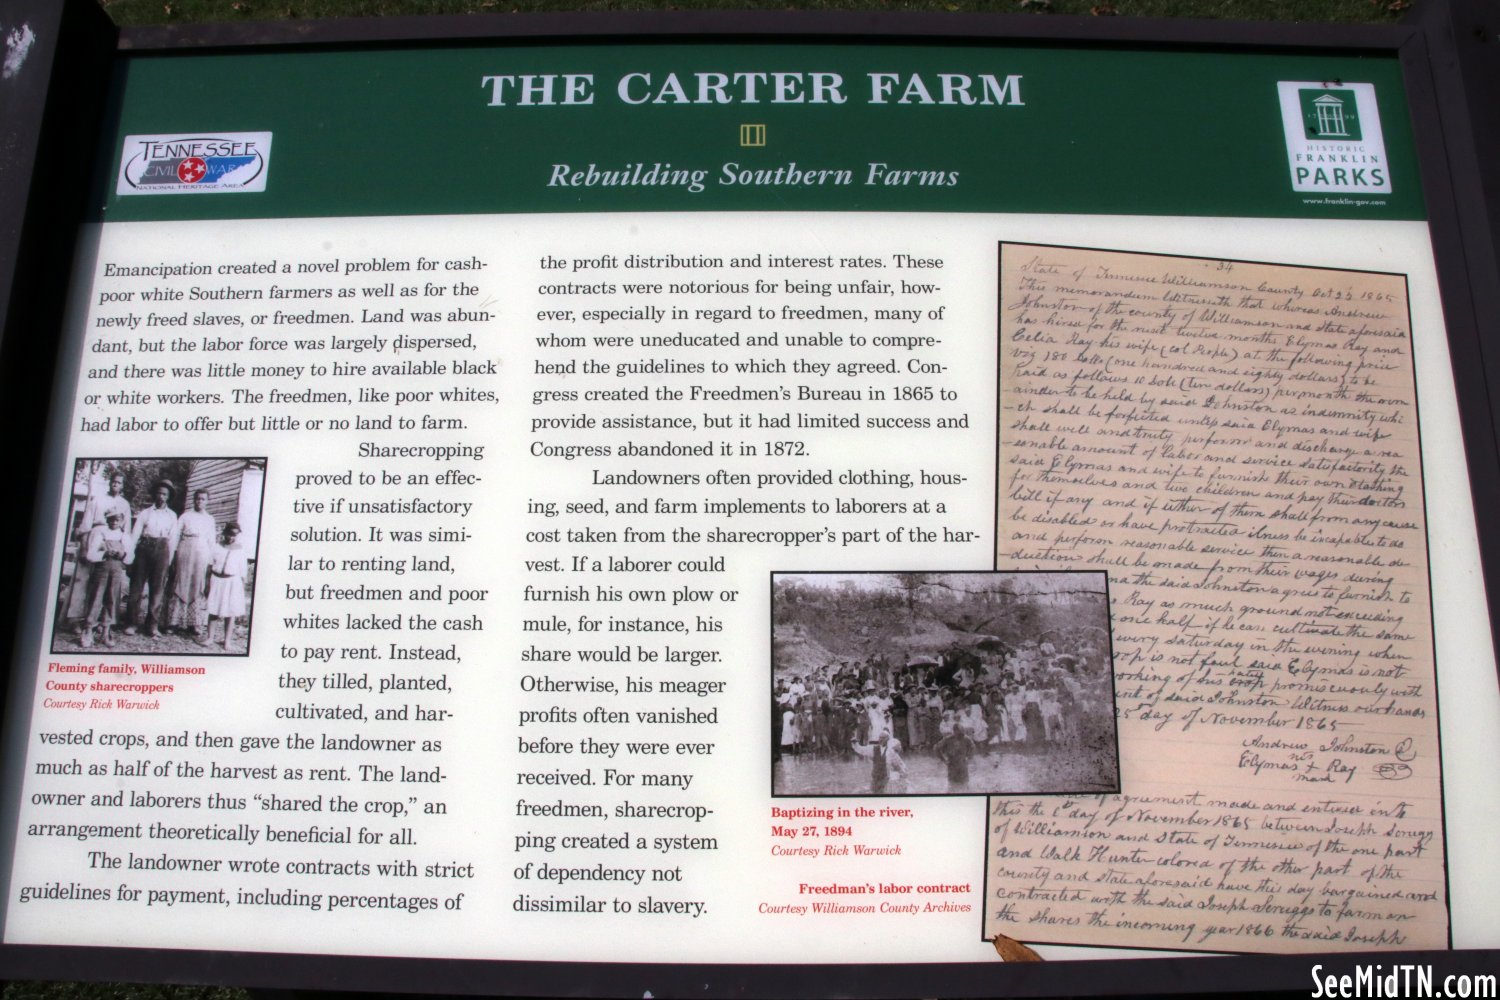 THE CARTER FARM
Rebuilding Southern Farms
TENNESSEE
CIVIL WAR
NATIONAL HERITAGE AREA
17 99
HISTORIC
FRANKLIN
PARKS
www.franklin-gov.com
Emancipation created a novel problem for cash-
poor white Southern farmers as well as for the
newly freed slaves, or freedmen. Land was abun-
dant, but the labor force was largely dispersed,
and there was little money to hire available black
or white workers. The freedmen, like poor whites,
had labor to offer but little or no land to farm.
Sharecropping
proved to be an effec-
tive if unsatisfactory
solution. It was simi-
lar to renting land,
but freedmen and poor
whites lacked the cash
to pay rent. Instead,
they tilled, planted,
cultivated, and har-
vested crops, and then gave the landowner as
much as half of the harvest as rent. The land-
owner and laborers thus “shared the crop,” an
arrangement theoretically beneficial for all.
The landowner wrote contracts with strict
guidelines for payment, including percentages of
Fleming family, Williamson
County sharecroppers
Courtesy Rick Warwick
the profit distribution and interest rates. These
contracts were notorious for being unfair, how-
ever, especially in regard to freedmen, many of
whom were uneducated and unable to compre-
hend the guidelines to which they agreed. Con-
gress created the Freedmen’s Bureau in 1865 to
provide assistance, but it had limited success and
Congress abandoned it in 1872.
Landowners often provided clothing, hous-
ing, seed, and farm implements to laborers at a
cost taken from the sharecropper’s part of the har-
vest. If a laborer could
furnish his own plow or
mule, for instance, his
share would be larger.
Otherwise, his meager
profits often vanished
before they were ever
received. For many
freedmen, sharecrop-
ping created a system
of dependency not
dissimilar to slavery.
Baptizing in the river,
May 27, 1894
Courtesy Rick Warwick
Freedman’s labor contract
Courtesy Williamson County Archives
34
State of Tennessee Williamson County Oct 25 1865
This memorandum Witnesseth that whereas Andrew
Johnston of the county of Williamson and State aforesaid
has hired for the next twelve months Elymas Ray and
Celia Ray his wife (col People) at the following price
viz 180 dolls (one hundred and eighty dollars) to be
paid as follows 10 dolls (ten dollars) per month the rem
ainder to be held by said Johnston as indemnity whi
-ch shall be forfeited unless said Elymas and wife
shall well and truly perform and discharge a rea
-sonable amount of labor and service satisfactorily the
said Elymas and wife to furnish their own clothing
for themselves and two children and pay their doctors
bill if any and if either of them shall from any cause
be disabled or have protracted ilness be incapable to do
and perform reasonable service then a reasonable de
-duction shall be made from their wages during
the said Johnston agrees to furnish to
Ray as much ground not exceeding
one half if he can cultivate the same
every Saturday in the evening when
crop is not foul said Elymas is not
working of his crop promiscuously with
of said Johnston Witness our hands
25 day of November 1865
Andrew Johnston
his
Elymas x Ray
mark
of agreement made and entered into
this the 6th day of November 1865 between Joseph Scruggs
of Williamson and State of Tennessee of the one part
and Walk Hunter colored of the other part of the
county and state aforesaid have this day bargained and
contracted with the said Joseph Scruggs to farm on
the shares the incoming year 1866 the said Joseph
SeeMidTN.com